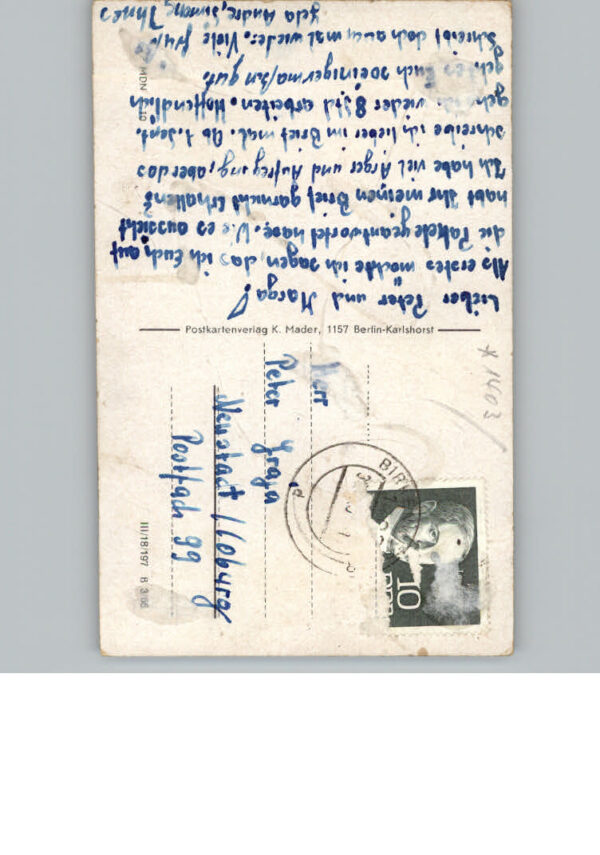 Lieber Peter und Marga!
Als erstes möchte ich sagen, das ich Euch auf
die Pakete geantwortet habe. Wie es aussieht
habt Ihr meinen Brief garnicht Erhalten?
Ich habe viel Ärger und Aufregung, aber das
schreibe ich lieber im Brief mal. Ab 1. Sept.
gehe ich wieder 8 Std arbeiten. Hoffendlich
geht es Euch soeinigermaßen gut.
Schreibt doch auch mal wieder. Viele
gela Andre, Simone,
MDN
Postkartenverlag K. Mader, 1157 Berlin-Karlshorst
Herr
Peter
Neustadt / Coburg
Postfach 99
III/18/197 B 3/66
10
DDR